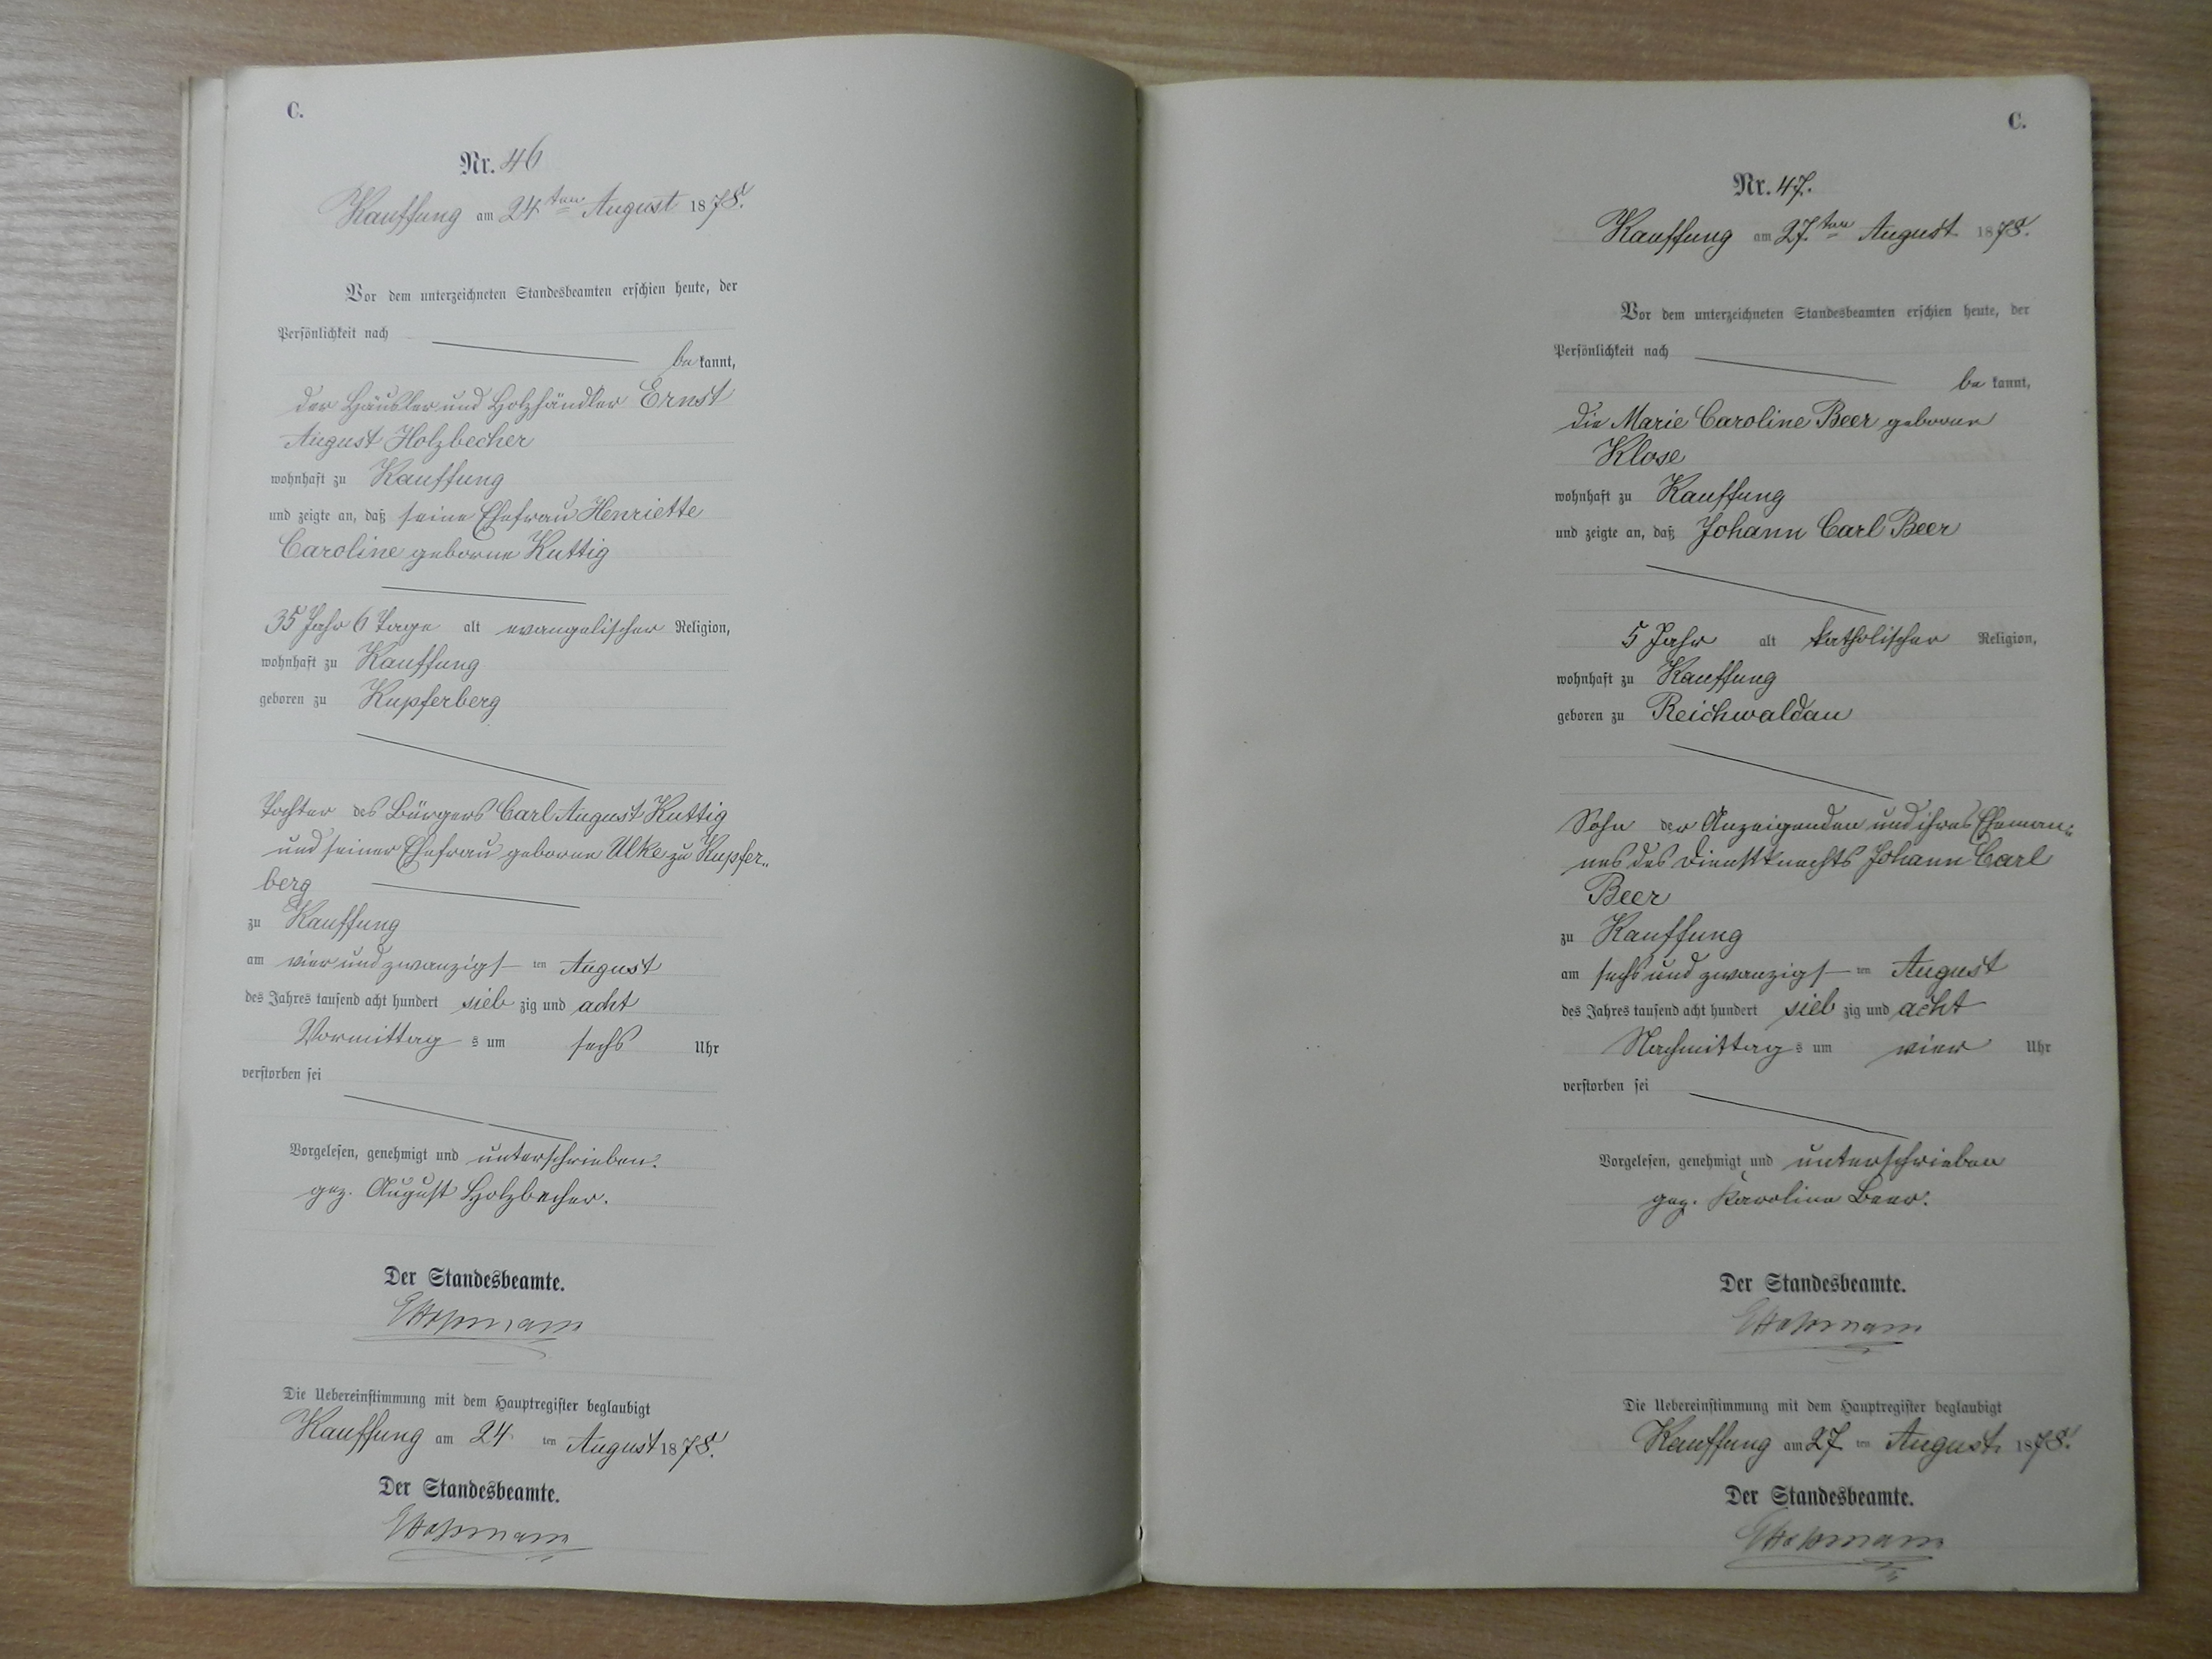 C.
Nr. 46
Kauffung am 24ten August 1878.
Vor dem unterzeichneten Standesbeamten erschien heute, der
Persönlichkeit nach
be kannt,
der Häusler und Holzhändler Ernst
August Holzbecher
wohnhaft zu Kauffung
und zeigte an, daß seine Ehefrau Henriette
Caroline geborne Kuttig
35 Jahr 6 Tage alt evangelischer Religion,
wohnhaft zu Kauffung
geboren zu Kupferberg
Tochter des Bürgers Carl August Kuttig
und seiner Ehefrau geborne Ulke zu Kupfer-
berg
zu Kauffung
am vier und zwanzigst ten August
des Jahres tausend acht hundert sieb zig und acht
Vormittag s um sechs Uhr
verstorben sei
Vorgelesen, genehmigt und unterschrieben.
gez. August Holzbecher.
Der Standesbeamte.
Die Uebereinstimmung mit dem Hauptregister beglaubigt
Kauffung am 24 ten August 1878.
Der Standesbeamte.
C.
Nr. 47.
Kauffung am 27.ten August 1878.
Vor dem unterzeichneten Standesbeamten erschien heute, der
Persönlichkeit nach
be kannt,
die Marie Caroline Beer geborne
Klose
wohnhaft zu Kauffung
und zeigte an, daß Johann Carl Beer
5 Jahr alt katholischer Religion,
wohnhaft zu Kauffung
geboren zu Reichwaldau
Sohn der Anzeigenden und ihres Eheman-
nes des Dienstknechts Johann Carl
Beer
zu Kauffung
am sechs und zwanzigst ten August
des Jahres tausend acht hundert sieb zig und acht
Nachmittag s um vier Uhr
verstorben sei
Vorgelesen, genehmigt und unterschrieben
gez. Karoline Beer.
Der Standesbeamte.
Die Uebereinstimmung mit dem Hauptregister beglaubigt
Kauffung am 27 ten August 1878.
Der Standesbeamte.